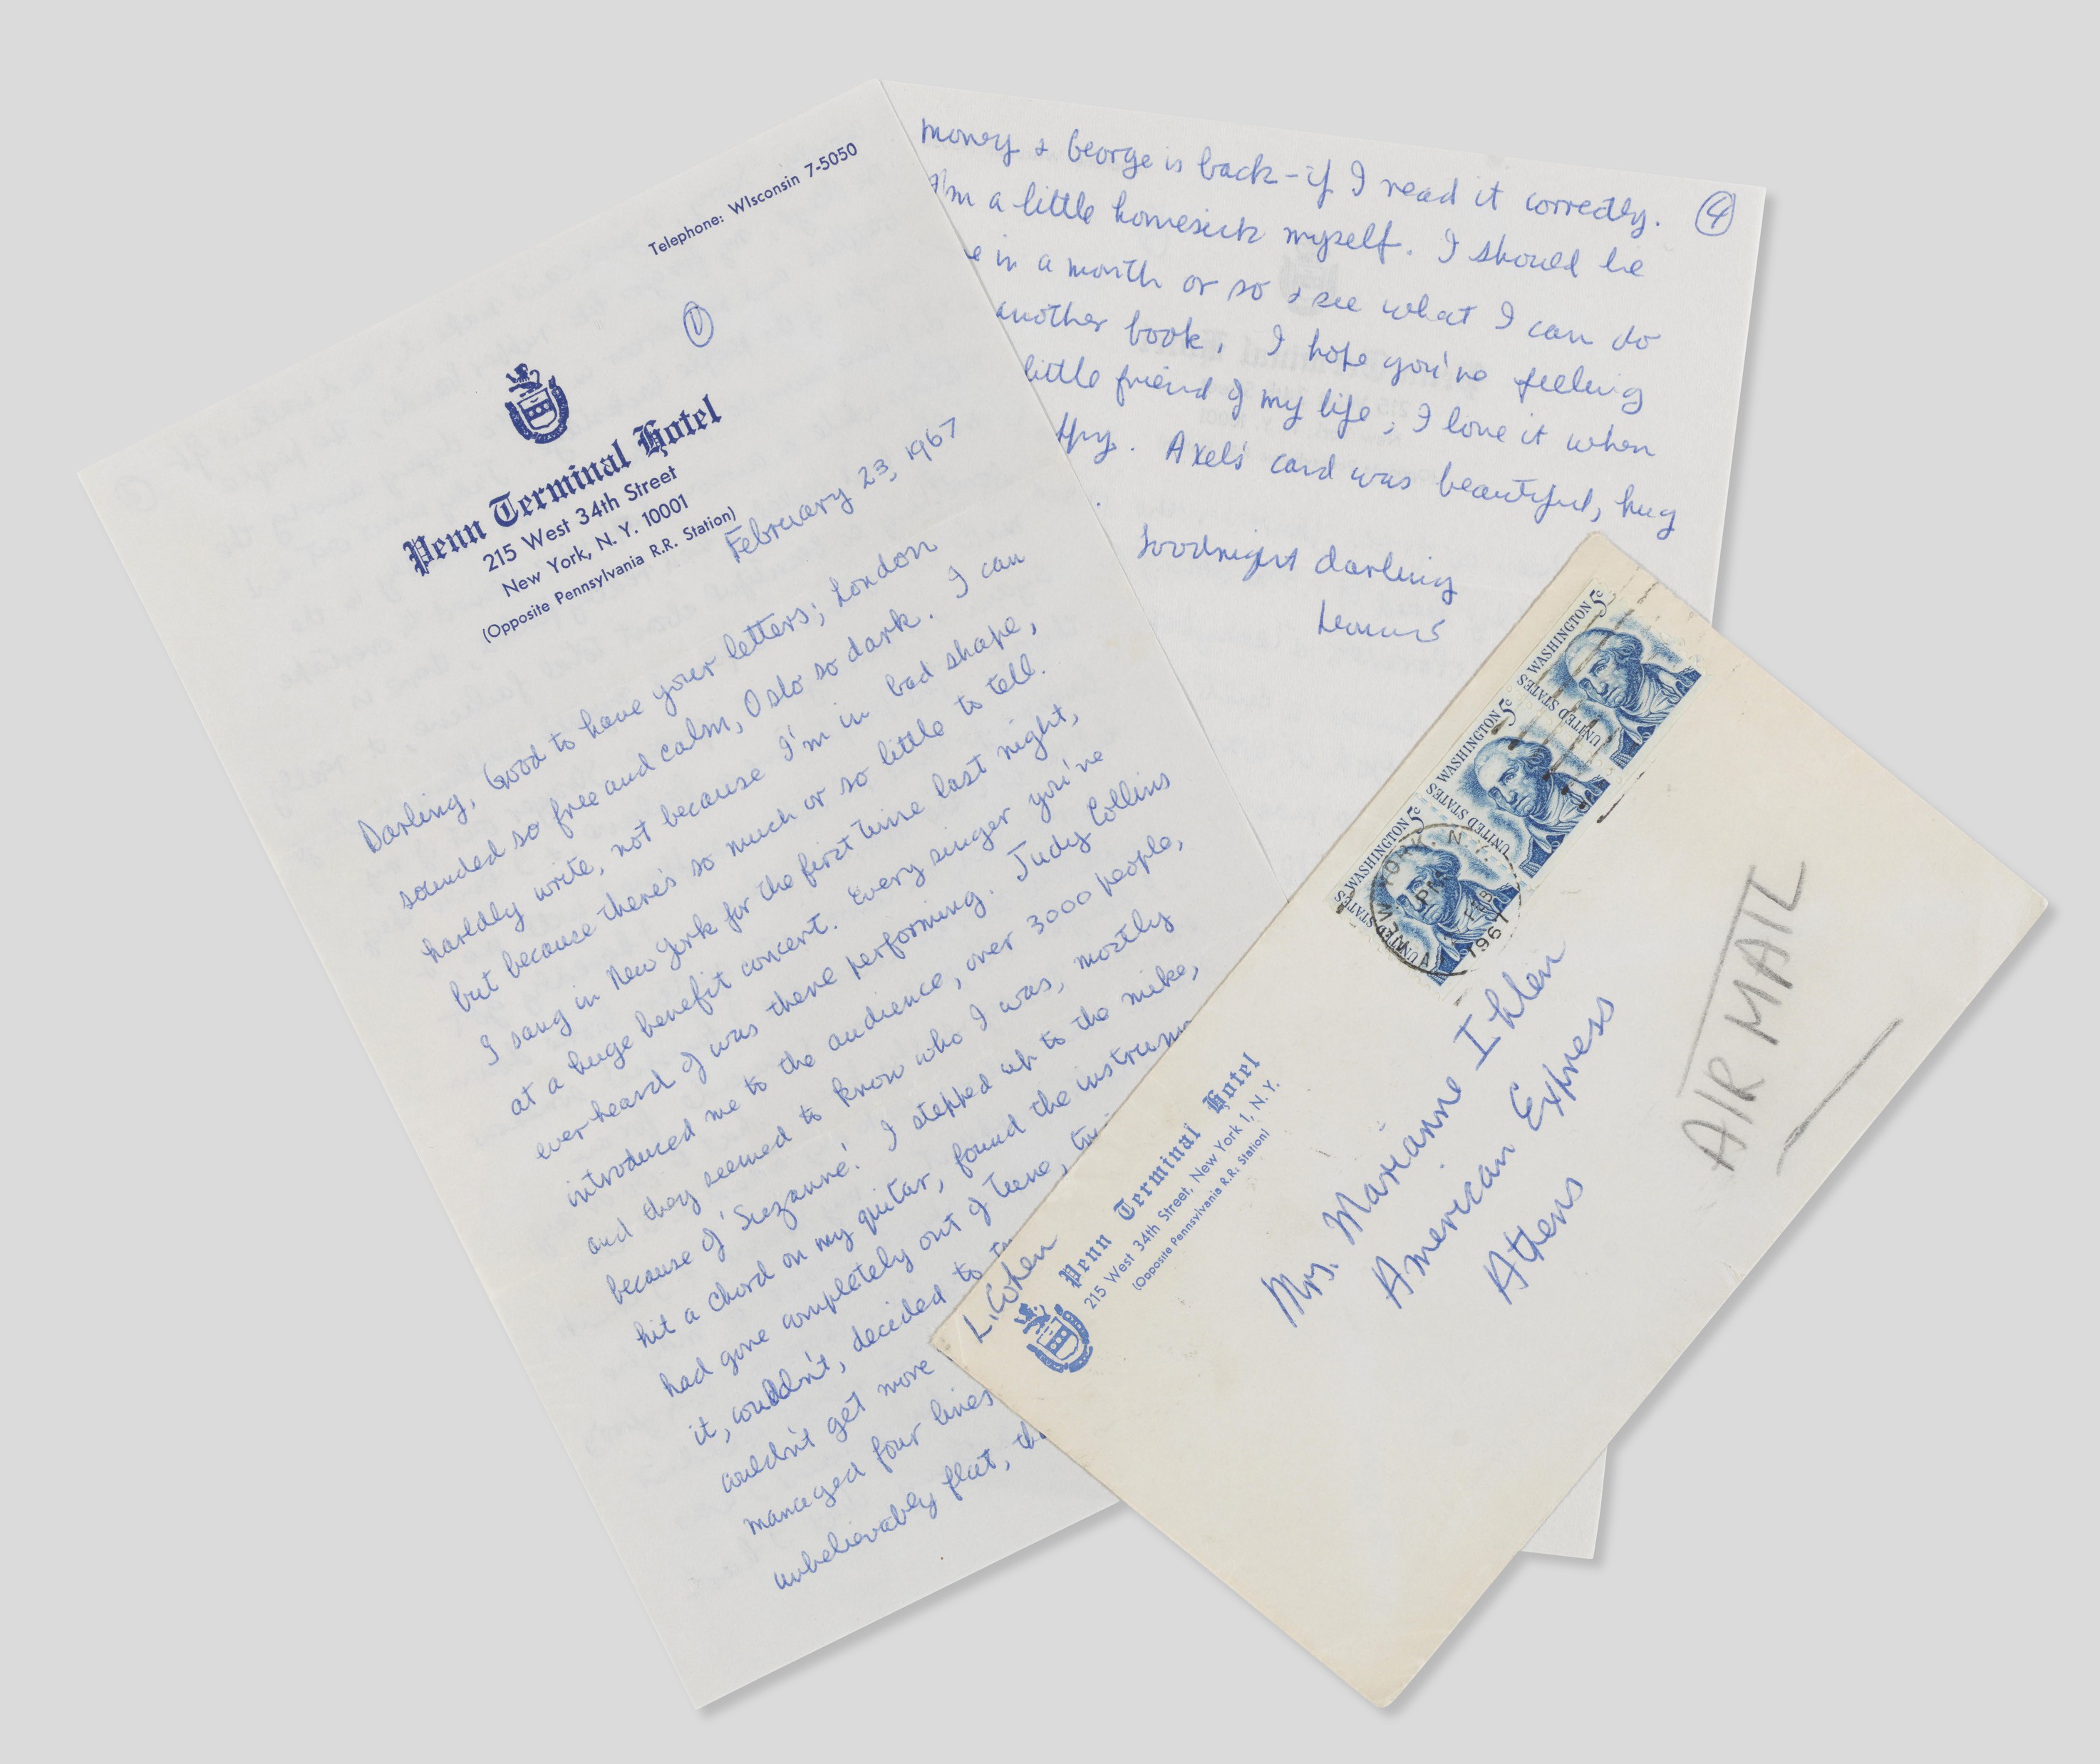 Telephone: WIsconsin 7-5050
1
Penn Terminal Hotel
215 West 34th Street
New York, N. Y. 10001
(Opposite Pennsylvania R.R. Station)
February 23, 1967
Darling, Good to have your letters; London
sounded so free and calm, Oslo so dark. I can
hardly write, not because I'm in bad shape,
but because there's so much or so little to tell.
I sang in New York for the first time last night,
at a huge benefit concert. Every singer you've
ever heard of was there performing. Judy Collins
introduced me to the audience, over 3000 people,
and they seemed to know who I was, mostly
because of 'Suzanne'. I stepped up to the mike,
hit a chord on my guitar, found the instrum
had gone completely out of tune,
it, couldn't, decided to
couldn't get more
managed four lines
unbelievably flat,
4
money & George is back - if I read it correctly.
I'm a little homesick myself. I should be
in a month or so & see what I can do
another book. I hope you're feeling
little friend of my life; I love it when
Axel's card was beautiful, hug
Goodnight darling
Leonard
UNITED STATES WASHINGTON 5c
UNITED STATES WASHINGTON 5c
UNITED STATES WASHINGTON 5c
NEW YORK, N.Y.
PM
FEB
1967
AIR MAIL
L. Cohen
Penn Terminal Hotel
215 West 34th Street, New York 1, N. Y.
(Opposite Pennsylvania R.R. Station)
Mrs. Marianne Ihlen
American Express
Athens